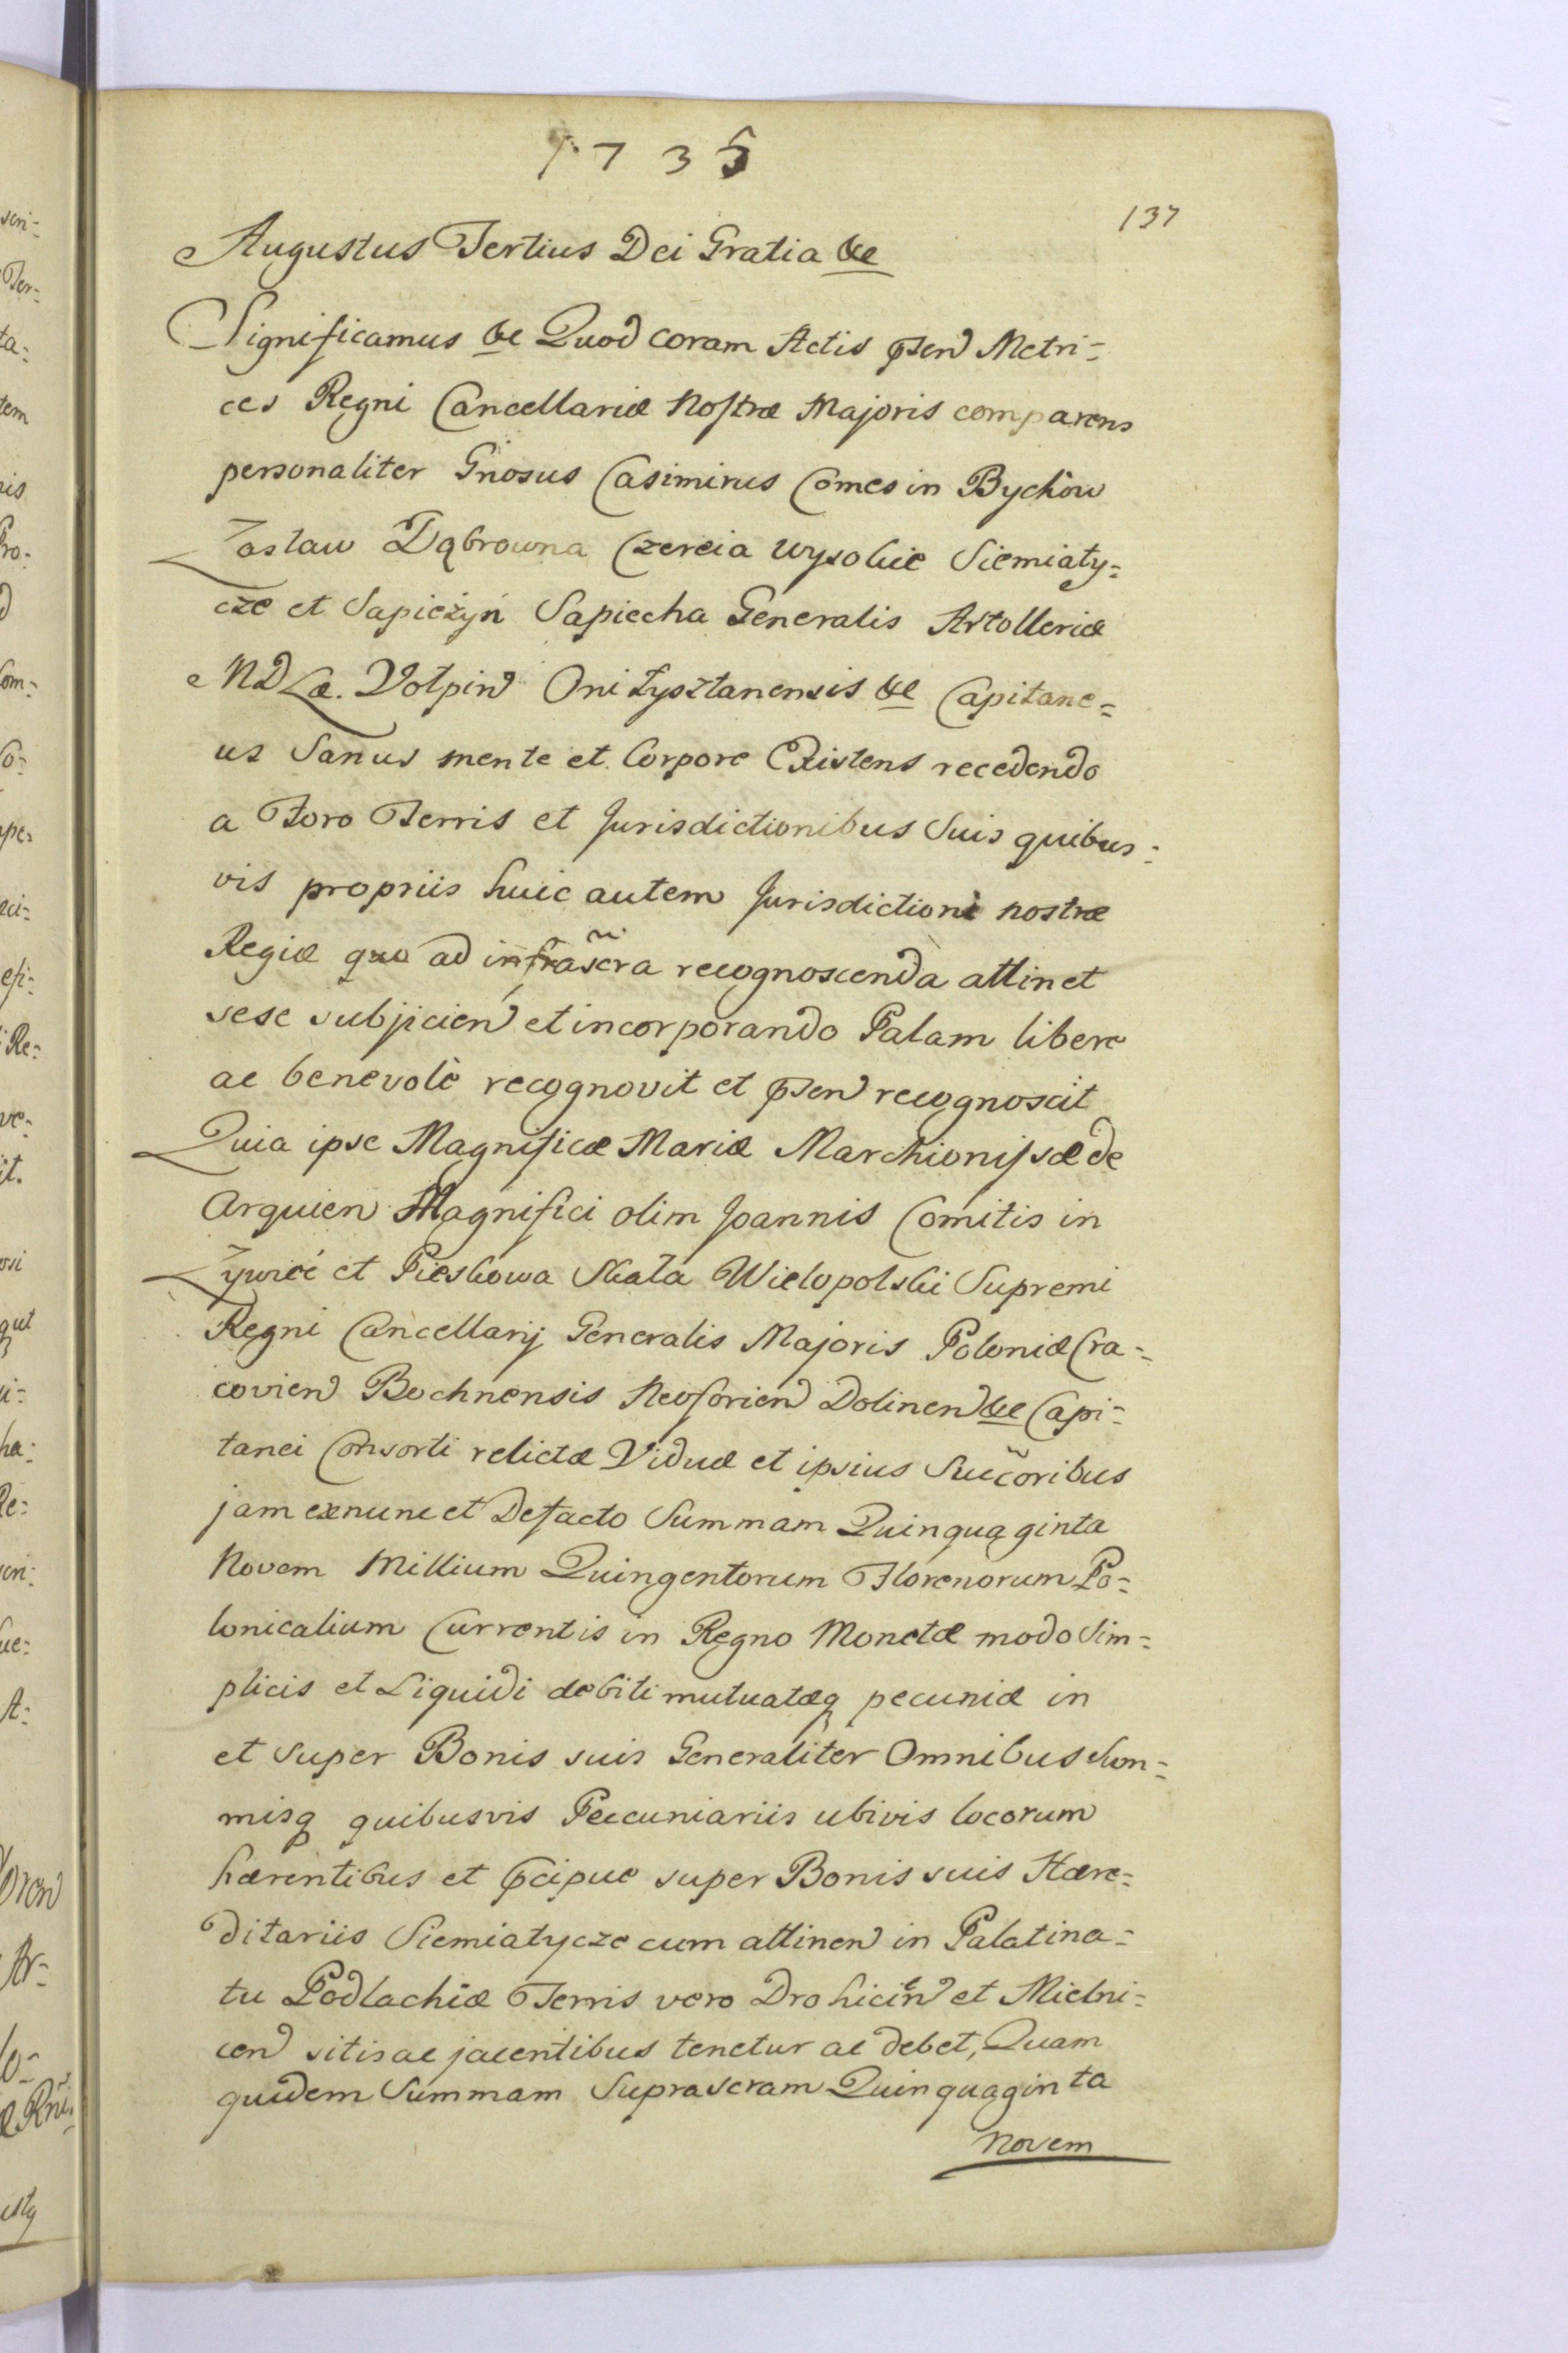 1735
137
Augustus Tertius Dei Gratia &c
Significamus &c Quod coram Actis psen Metri=
ces Regni Cancellariæ Nostræ Majoris comparens
personaliter Gnosus Casimirus Comes in Bychòw
Zasław Dąbrowna Czereia wysokie Siemiaty=
cze et Sapieżyn Sapiecha Generalis Artolleriæ
MDLæ. Volpin Onixysztanensis &c Capitane=
us Sanus mente et Corpore Existens recedendo
a Foro Terris et Jurisdictionibus Suis quibus=
vis propriis huic autem Jurisdictioni nostræ
Regiæ quo ad infrascra recognoscenda attinet
sese subjicien et incorporando Palam libere
ac benevolè recognovit et psen recognoscit
Quia ipse Magnificæ Mariæ Marchionissæ de
Arquien Magnifici olim Joannis Comitis in
Zywiec et Pieskowa Skała Wielopolski Supremi
Regni Cancellarij Generalis Majoris Poloniæ Cra=
covien Bochnensis Neoforien Dolinen &c Capi=
tanei Consorti relictæ Viduæ et ipsius Succoribus
jam exnunc et Defacto Summam Quinquaginta
Novem Millium Quingentorum Florenorum Po=
lonicalium Currentis in Regno Monetæ modo Sim=
plicis et Liquidi debiti mutuatæq pecuniæ in
et super Bonis suis Generaliter Omnibus Sum=
misq quibusvis Peccuniariis ubivis locorum
hærentibus et pcipue super Bonis suis Hære=
ditariis Siemiatycze cum attinen in Palatina=
tu Podlachiæ Terris vero Drohicien et Mielni=
cen sitis ac jacentibus tenetur ac debet, Quam
quidem Summam Suprascram Quinquaginta
Novem